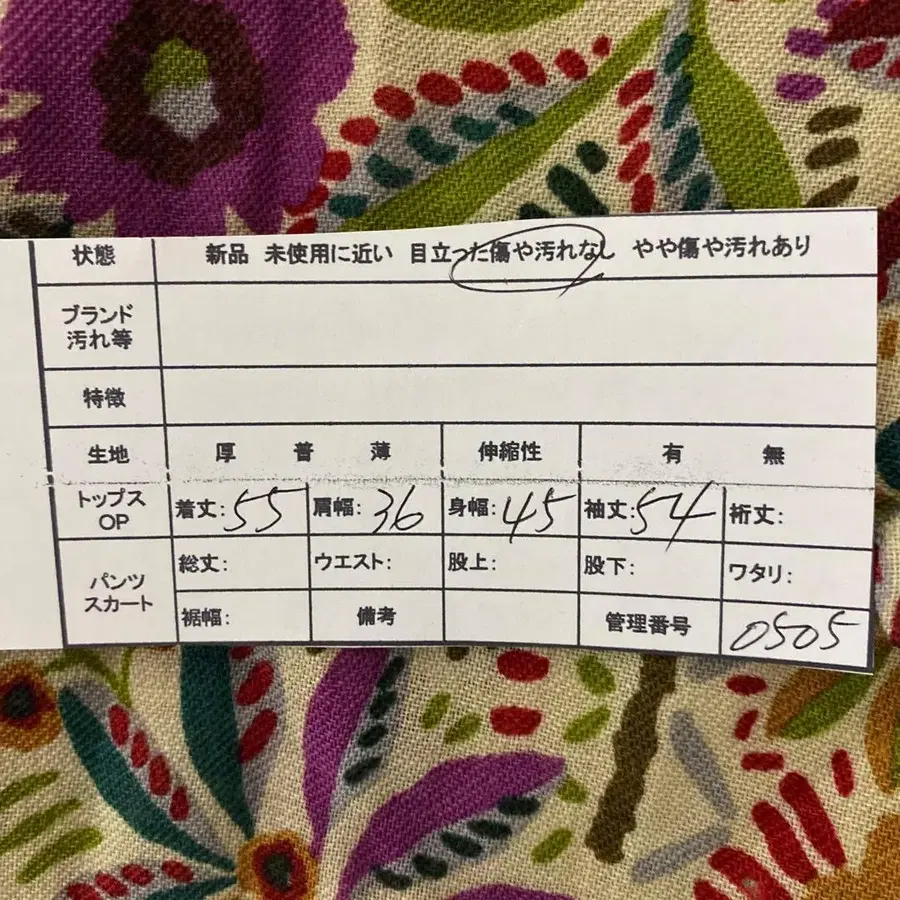 状態 新品 未使用に近い 目立った傷や汚れなし やや傷や汚れあり
ブランド
汚れ等
特徴
生地 厚 普 薄 伸縮性 有 無
トップス
OP 着丈:55 肩幅:36 身幅:45 袖丈:54 裄丈:
パンツ
スカート
総丈: ウエスト: 股上: 股下: ワタリ:
裾幅: 備考 管理番号 0505